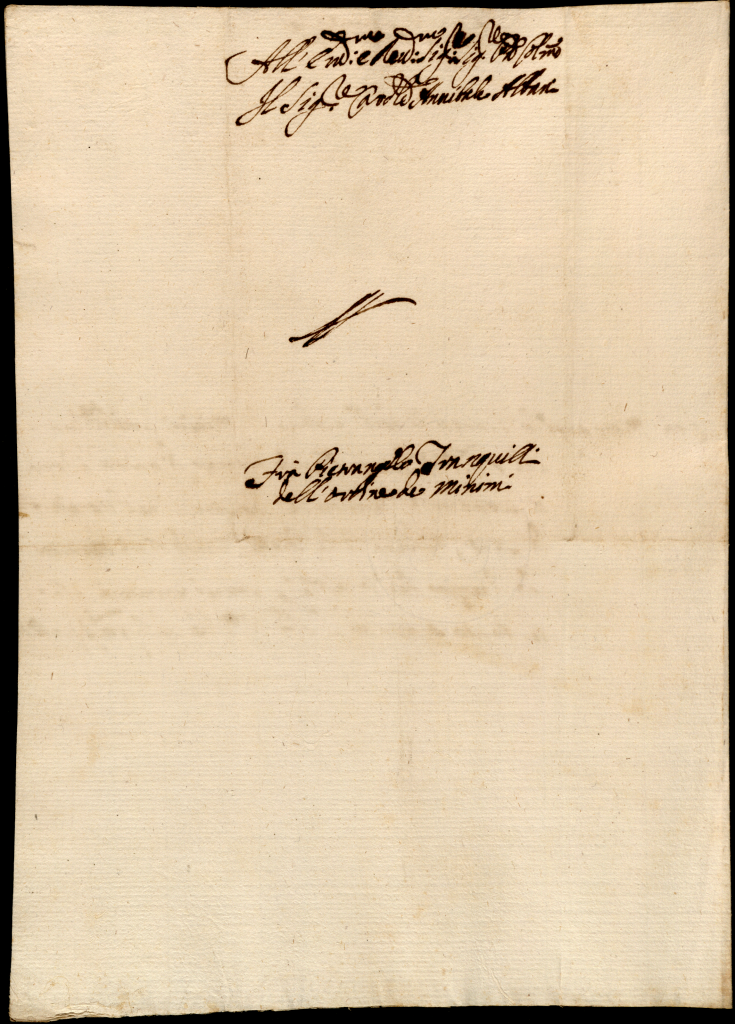 All' Em:mo e Rev:mo Sig:re Sig:re P'ron Col:mo
Il Sig:re Card:le Annibale Albani
Frà Pierangelo Tranquilli
dell'ordine de Minimi